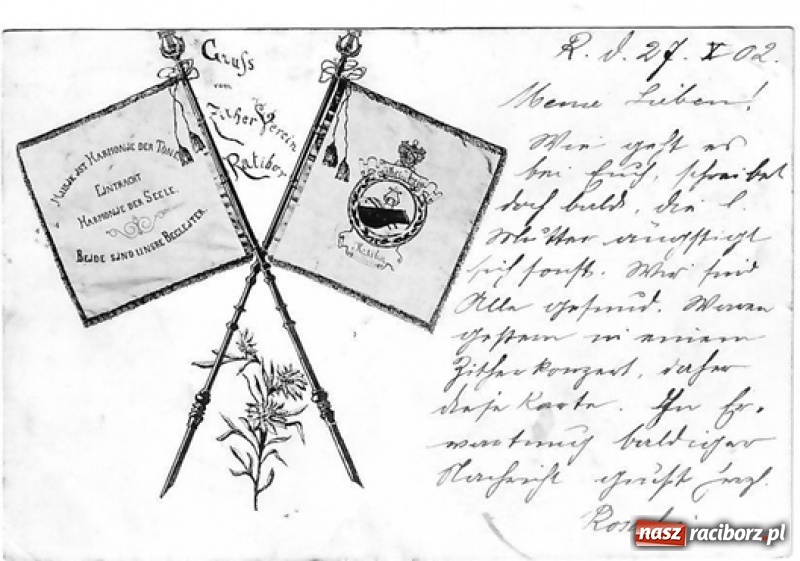 Gruss
vom
Zither Verein
Ratibor
Musik ist Harmonie der Töne
Eintracht
Harmonie der Seele.
Beide sind unsere Begleiter.
Ratibor
R. d. 27. X 02.
Meine Lieben!
Wie geht es
bei Euch, schreibet
doch bald, die l.
Mutter ängstigt
sich sonst. Wir sind
Alle gesund. Waren
gestern in einem
Zitherkonzert, daher
diese Karte. In Er-
wartung baldiger
Nachricht grüßt
nasz raciborz.pl